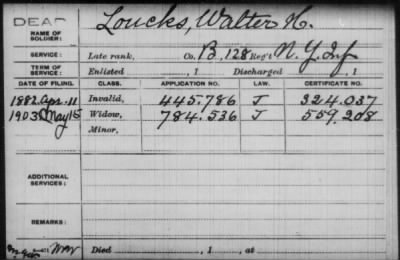 DEAD
NAME OF SOLDIER: Loucks, Walter H.
SERVICE: Late rank, Co. B, 128 Reg't N.Y. Inf
TERM OF SERVICE: Enlisted , 1 Discharged , 1
DATE OF FILING. CLASS. APPLICATION NO. LAW. CERTIFICATE NO.
1882 Apr. 11 Invalid, 445.786 J 324.037
1903 May 15 Widow, 784.536 J 559.208
Minor,
ADDITIONAL SERVICES:
REMARKS:
Died , 1 , at